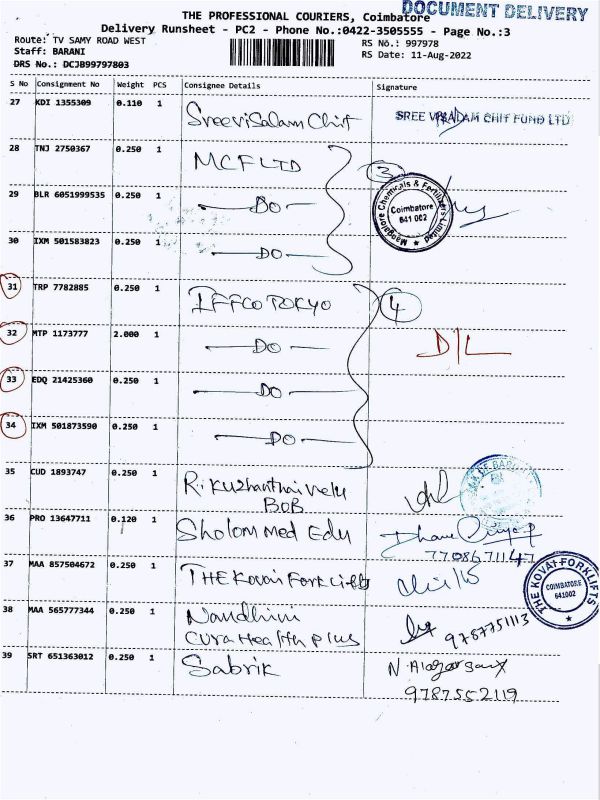 DOCUMENT DELIVERY
THE PROFESSIONAL COURIERS, Coimbatore
Delivery Runsheet - PC2 - Phone No.:0422-3505555 - Page No.:3
Route: TV SAMY ROAD WEST
RS No.: 997978
Staff: BARANI
RS Date: 11-Aug-2022
DRS No.: DCJB99797803
S No Consignment No Weight PCS Consignee Details Signature
27 KDI 1355309 0.110 1 Sreevisalam Chit SREE VISALAM CHIT FUND LTD
28 TNJ 2750367 0.250 1 MCF LTD 3
Mangalore Chemicals & Fertilizers Limited
Coimbatore
641 002
29 BLR 6051999535 0.250 1 DO
30 IXM 501583823 0.250 1 DO
31 TRP 7782885 0.250 1 IFFCO TOKYO 4
32 MTP 1173777 2.000 1 DO D/L
33 EDQ 21425360 0.250 1 DO
34 IXM 501873590 0.250 1 DO
35 CUD 1893747 0.250 1 R. Kuzhanthaivelu
BOB
36 PRO 13647711 0.120 1 Sholom med Edu
7708671147
37 MAA 857504672 0.250 1 THE Kovai Fork Lifts
THE KOVAI FORKLIFTS
COIMBATORE
641002
38 MAA 565777344 0.250 1 Nandhini
Cura Health plus 9787751113
39 SRT 651363012 0.250 1 Sabrik
9787552119